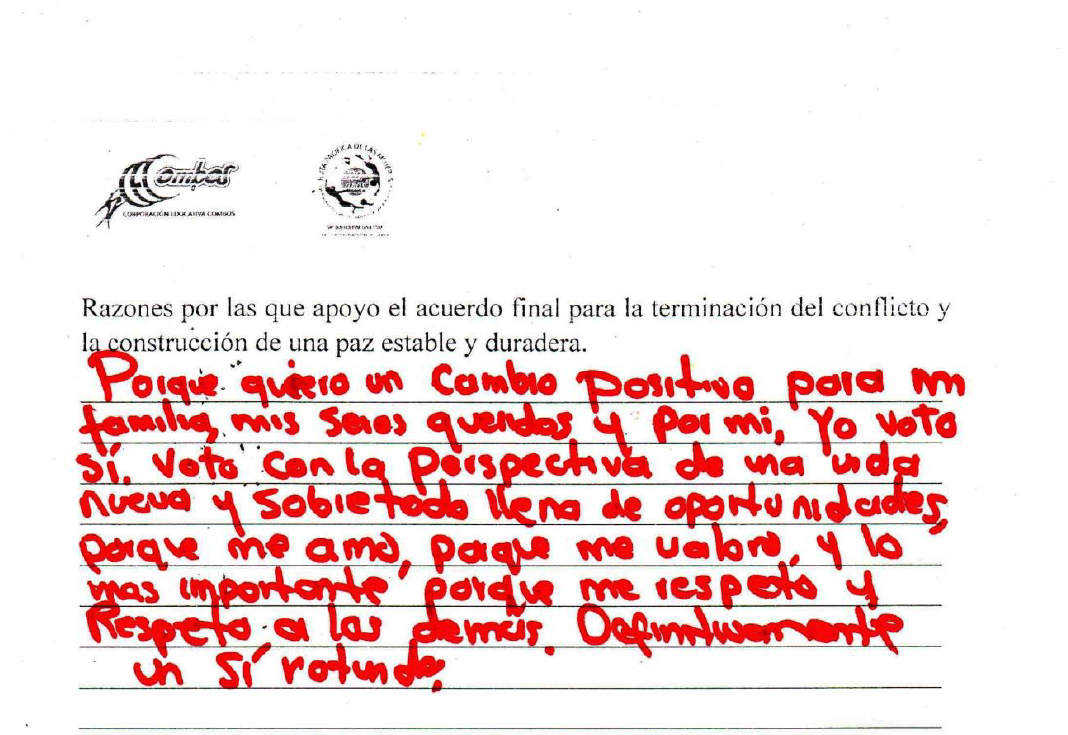 Combos
CORPORACIÓN EDUCATIVA COMBOS
Razones por las que apoyo el acuerdo final para la terminación del conflicto y
la construcción de una paz estable y duradera.
Porque quiero un Cambio Positivo para mi
familia, mis seres queridos y por mi, Yo voto
sí. Voto con la perspectiva de una vida
nueva y sobretodo llena de oportunidades,
porque me amo, porque me valoro, y lo
mas importante porque me respeto y
Respeto a las demás. Definitivamente
un Sí rotundo.